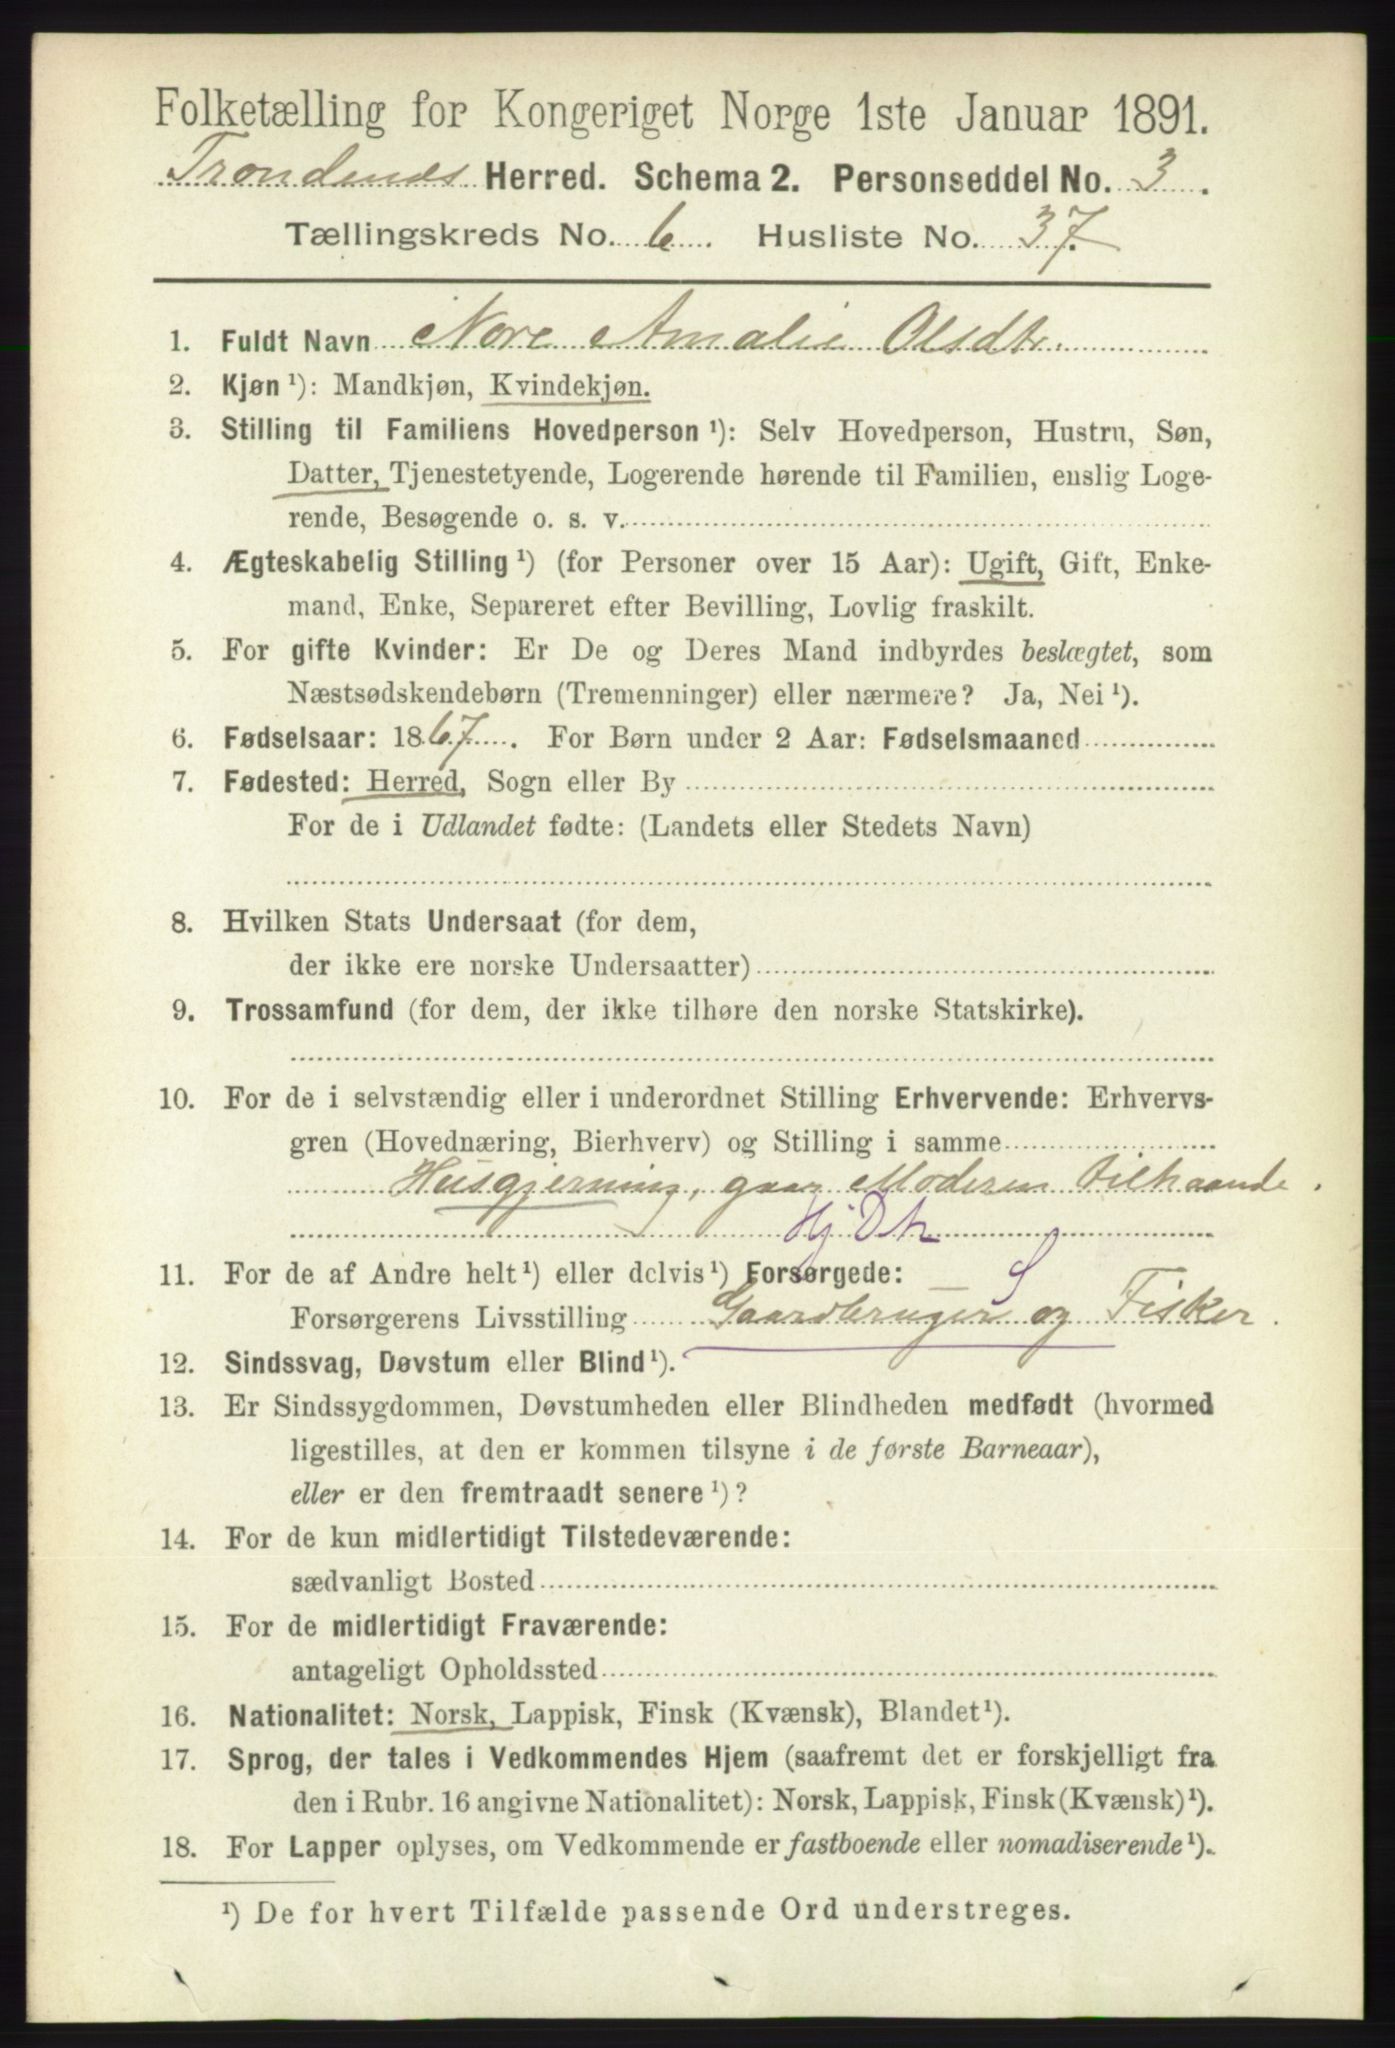 Folketælling for Kongeriget Norge 1ste Januar 1891.
Trondenes Herred. Schema 2. Personseddel No. 3.
Tællingskreds No. 6. Husliste No. 37.
1. Fuldt Navn Nore Amalie Olsdtr.
2. Kjøn ¹): Mandkjøn, Kvindekjøn.
3. Stilling til Familiens Hovedperson ¹): Selv Hovedperson, Hustru, Søn,
Datter, Tjenestetyende, Logerende hørende til Familien, enslig Loge-
rende, Besøgende o. s. v.
4. Ægteskabelig Stilling ¹) (for Personer over 15 Aar): Ugift, Gift, Enke-
mand, Enke, Separeret efter Bevilling, Lovlig fraskilt.
5. For gifte Kvinder: Er De og Deres Mand indbyrdes beslægtet, som
Næstsødskendebørn (Tremenninger) eller nærmere? Ja, Nei ¹).
6. Fødselsaar: 1867. For Børn under 2 Aar: Fødselsmaaned
7. Fødested: Herred, Sogn eller By
For de i Udlandet fødte: (Landets eller Stedets Navn)
8. Hvilken Stats Undersaat (for dem,
der ikke ere norske Undersaatter)
9. Trossamfund (for dem, der ikke tilhøre den norske Statskirke).
10. For de i selvstændig eller i underordnet Stilling Erhvervende: Erhvervs-
gren (Hovednæring, Bierhverv) og Stilling i samme
Husgjerning, gaar Moderen tilhaande.
Hj Dtr
11. For de af Andre helt ¹) eller delvis ¹) Forsørgede: S
Forsørgerens Livsstilling Gaardbruger og Fisker.
12. Sindssvag, Døvstum eller Blind ¹).
13. Er Sindssygdommen, Døvstumheden eller Blindheden medfødt (hvormed
ligestilles, at den er kommen tilsyne i de første Barneaar),
eller er den fremtraadt senere ¹)?
14. For de kun midlertidigt Tilstedeværende:
sædvanligt Bosted
15. For de midlertidigt Fraværende:
antageligt Opholdssted
16. Nationalitet: Norsk, Lappisk, Finsk (Kvænsk), Blandet ¹).
17. Sprog, der tales i Vedkommendes Hjem (saafremt det er forskjelligt fra
den i Rubr. 16 angivne Nationalitet): Norsk, Lappisk, Finsk (Kvænsk) ¹).
18. For Lapper oplyses, om Vedkommende er fastboende eller nomadiserende ¹).
¹) De for hvert Tilfælde passende Ord understreges.